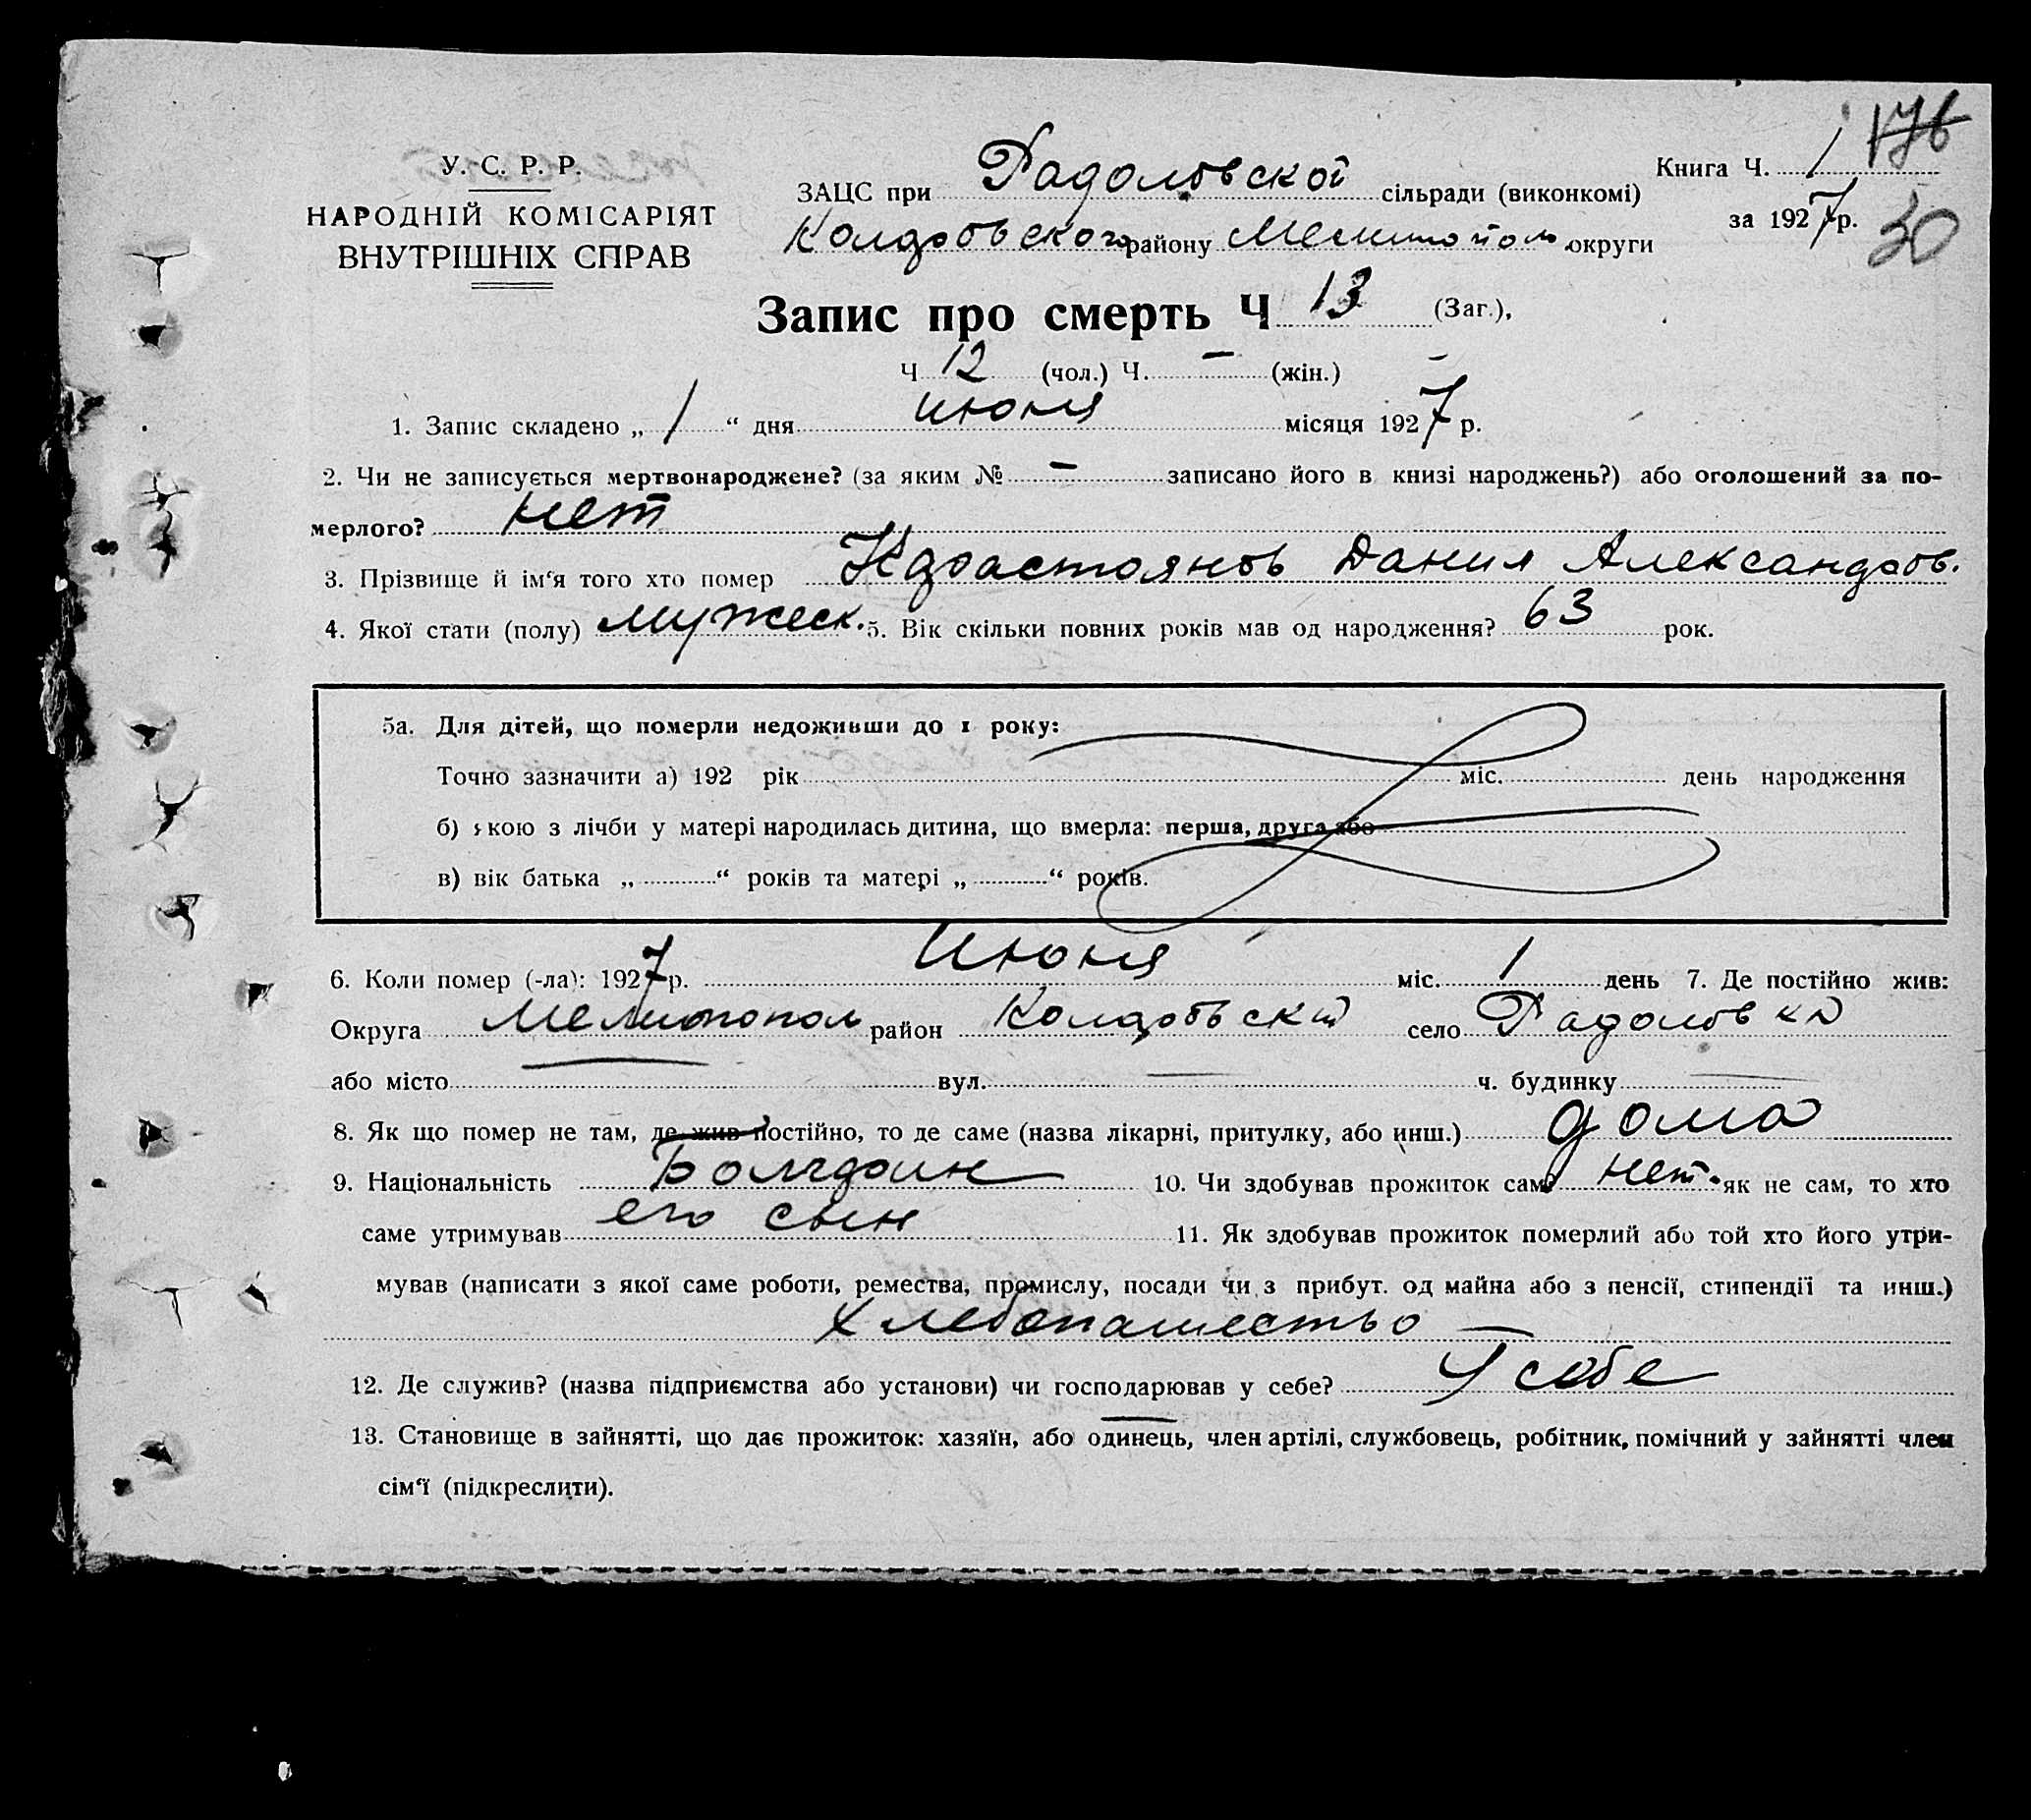 176
У. С. Р. Р.
НАРОДНІЙ КОМІСАРІЯТ
ВНУТРІШНІХ СПРАВ
ЗАЦС при Радоловской сільради (виконкомі)
району округи
Книга Ч. 1
за 1927 р.
30
Запис про смерть Ч 13 (Заг.),
Ч 12 (чол.) Ч. – (жін.)
1. Запис складено „ 1 “ дня июня місяця 1927 р.
2. Чи не записується мертвонароджене? (за яким № – записано його в книзі народжень?) або оголошений за по-
мерлого? нет
3. Прізвище й ім‘я того хто помер Данил Александров.
4. Якої стати (полу) мужеск. 5. Вік скільки повних років мав од народження? 63 рок.
5а. Для дітей, що померли недоживши до 1 року:
Точно зазначити а) 192 рік міс. день народження
б) якою з лічби у матері народилась дитина, що вмерла: перша, друга або
в) вік батька „ “ років та матері „ “ років.
6. Коли помер (-ла): 1927 р. Июня міс. 1 день 7. Де постійно жив:
Округа Мелитопол район село Радоловка
або місто – вул. – ч. будинку –
8. Як що помер не там, де жив постійно, то де саме (назва лікарні, притулку, або инш.) дома
9. Національність Болгарин 10. Чи здобував прожиток сам? нет. як не сам, то хто
саме утримував его сын 11. Як здобував прожиток померлий або той хто його утри-
мував (написати з якої саме роботи, ремества, промислу, посади чи з прибут. од майна або з пенсії, стипендії та инш.)
хлебопашество –
12. Де служив? (назва підприємства або установи) чи господарював у себе? У себе
13. Становище в зайнятті, що дає прожиток: хазяїн, або одинець, член артілі, службовець, робітник, помічний у зайнятті член
сім‘ї (підкреслити).